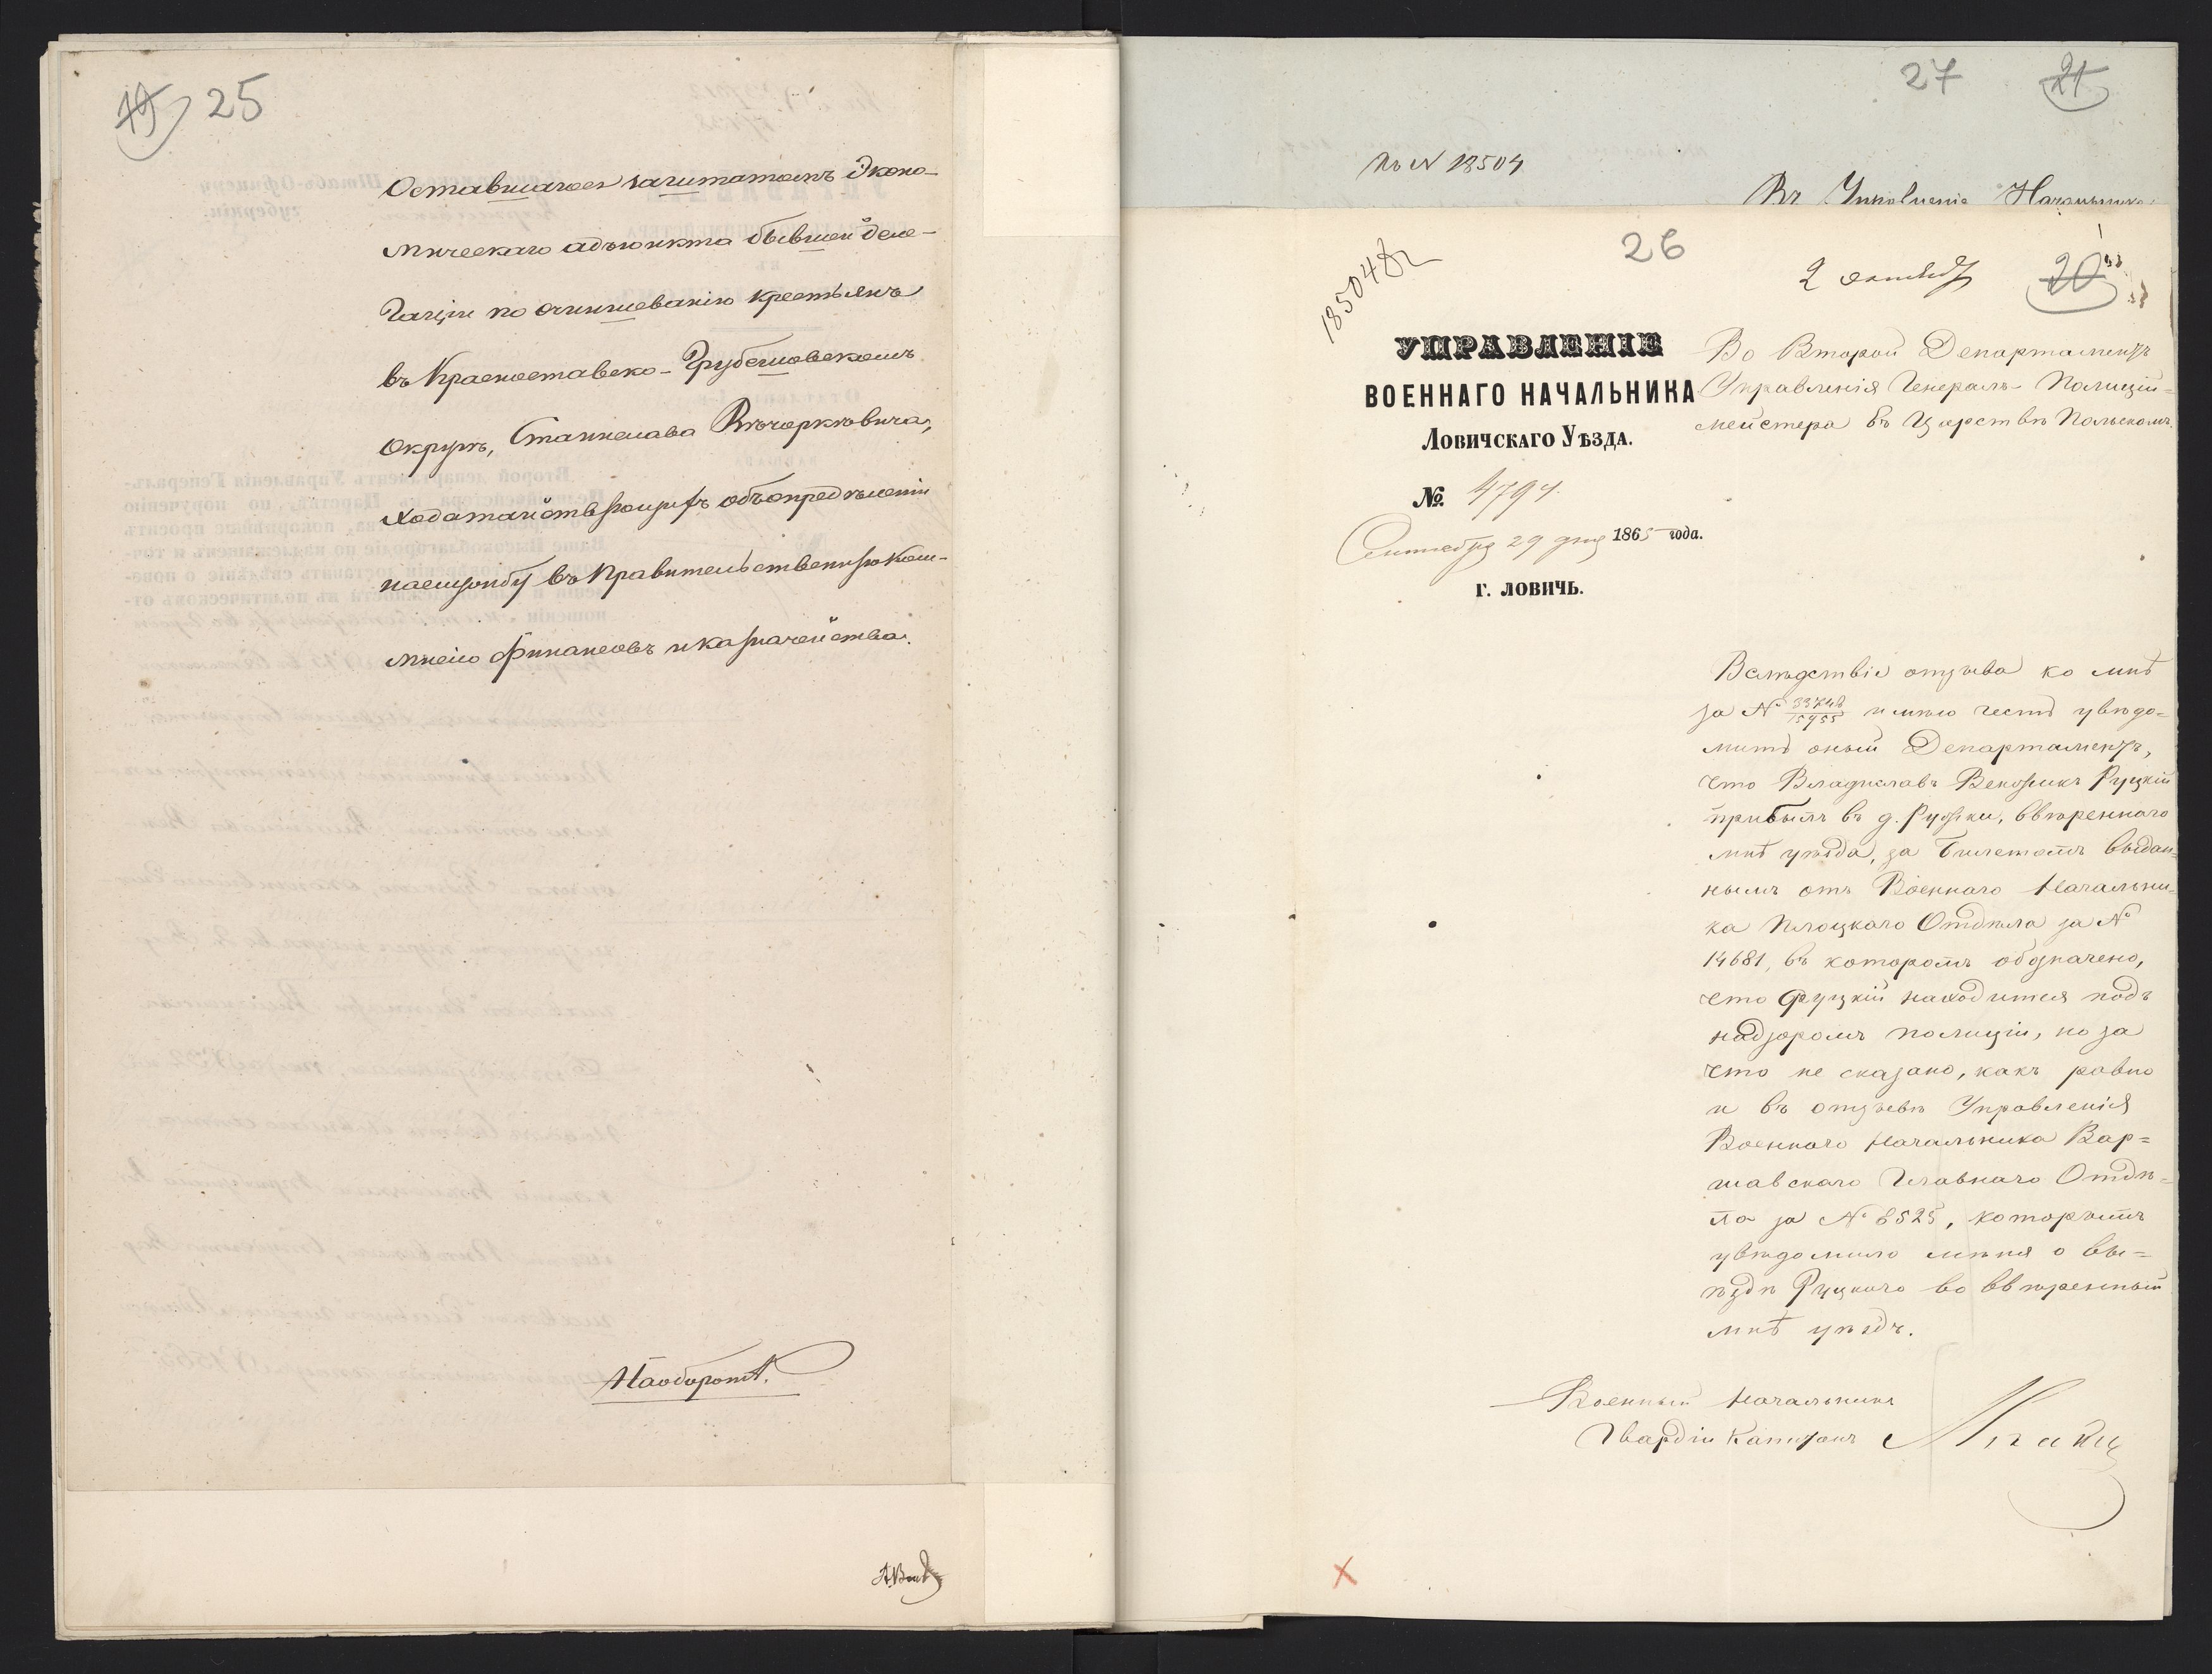 19 25
Оставшагося за штатомъ Эконо-
мическаго адъюнкта бывшей деле-
гаціи по очиншеванію крестьянъ
въ Красноставско-Грубешовскомъ
округѣ, Станислава Вѣчорковича,
ходатайствующаго объ опредѣленіи
на службу въ Правительственную Ком-
мисію Финансовъ и казначейства.
Наоборотъ.
27 21
Къ № 18504
Въ Управленіе Начальника
26
18504
2 октября 20
УПРАВЛЕНІЕ
ВОЕННАГО НАЧАЛЬНИКА
Ловичскаго Уѣзда.
№ 4794.
Сентября 29 дня 1865 года.
г. ЛОВИЧЬ.
Во Второй Департаментъ
Управленія Генералъ-Полиціи=
мейстера въ Царствѣ Польскомъ.
Вслѣдствіе отзыва ко мнѣ
за № 33748/15955 имѣю честь увѣдо=
мить оный Департаментъ,
что Владиславъ Руцкій
прибылъ въ д. ввѣреннаго
мнѣ уѣзда, за билетомъ выдан=
нымъ отъ Военнаго Начальни=
ка Плоцкаго Отдѣла за №
14681, въ которомъ обозначено,
что Руцкій находится подъ
надзоромъ полиціи, но за
что не сказано, какъ равно
и въ отзывѣ Управленія
Военнаго Начальника Вар=
шавскаго Главнаго Отдѣ=
ла за № 8525, которымъ
увѣдомило меня о вы=
ѣздѣ Руцкаго во ввѣренный
мнѣ уѣздъ.
Военный Начальникъ
Гвардіи Капитанъ